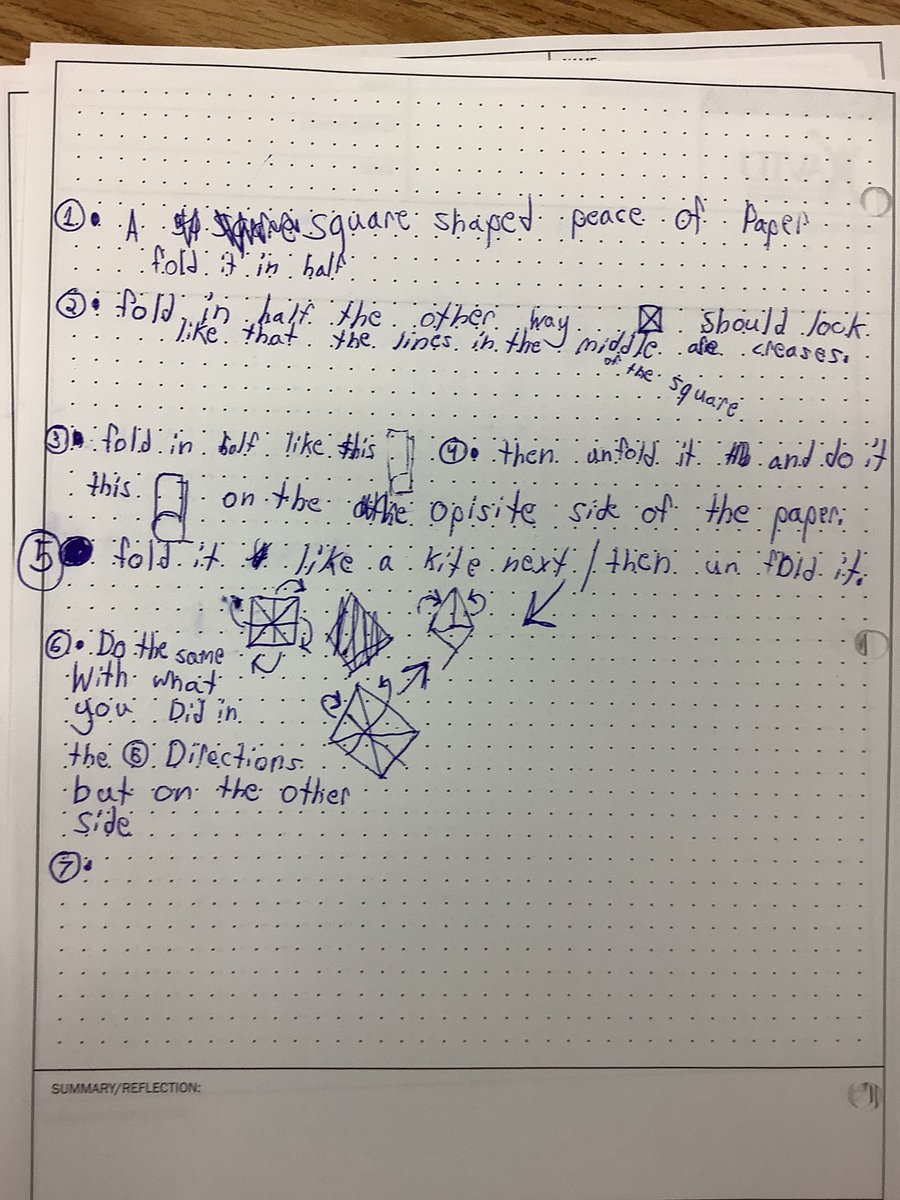 ①. A square shaped peace of Paper
fold it in half
②. fold in half the other way should look
like that the lines in the middle are creases.
of the square
③. fold in half like this ④. then unfold it and do it
this on the the opisite side of the paper.
5 fold it like a kite next/then un fold it.
⑥. Do the same
With what
you Did in
the ⑤ Directions
but on the other
side
⑦.
SUMMARY/REFLECTION: